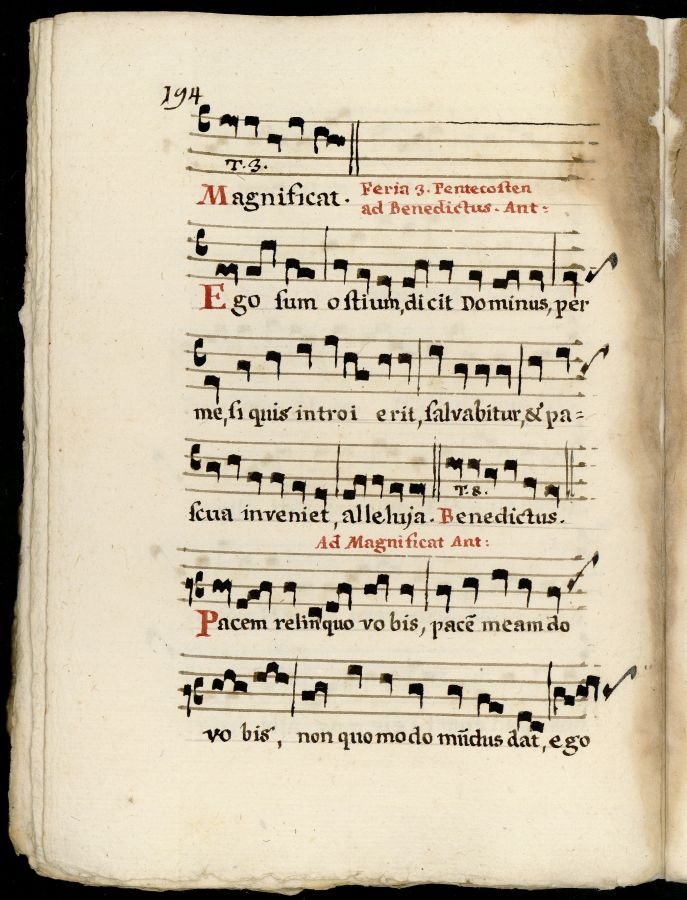 194
T. 3.
Magnificat. Feria 3. Pentecosten
ad Benedictus. Ant:
Ego sum ostium, dicit Dominus, per
me, si quis introi erit, salvabitur, & pa=
T. 8.
scua inveniet, alleluja. Benedictus.
Ad Magnificat Ant:
Pacem relinquo vobis, pacē meam do
vo bis, non quomodo mūdus dat, ego